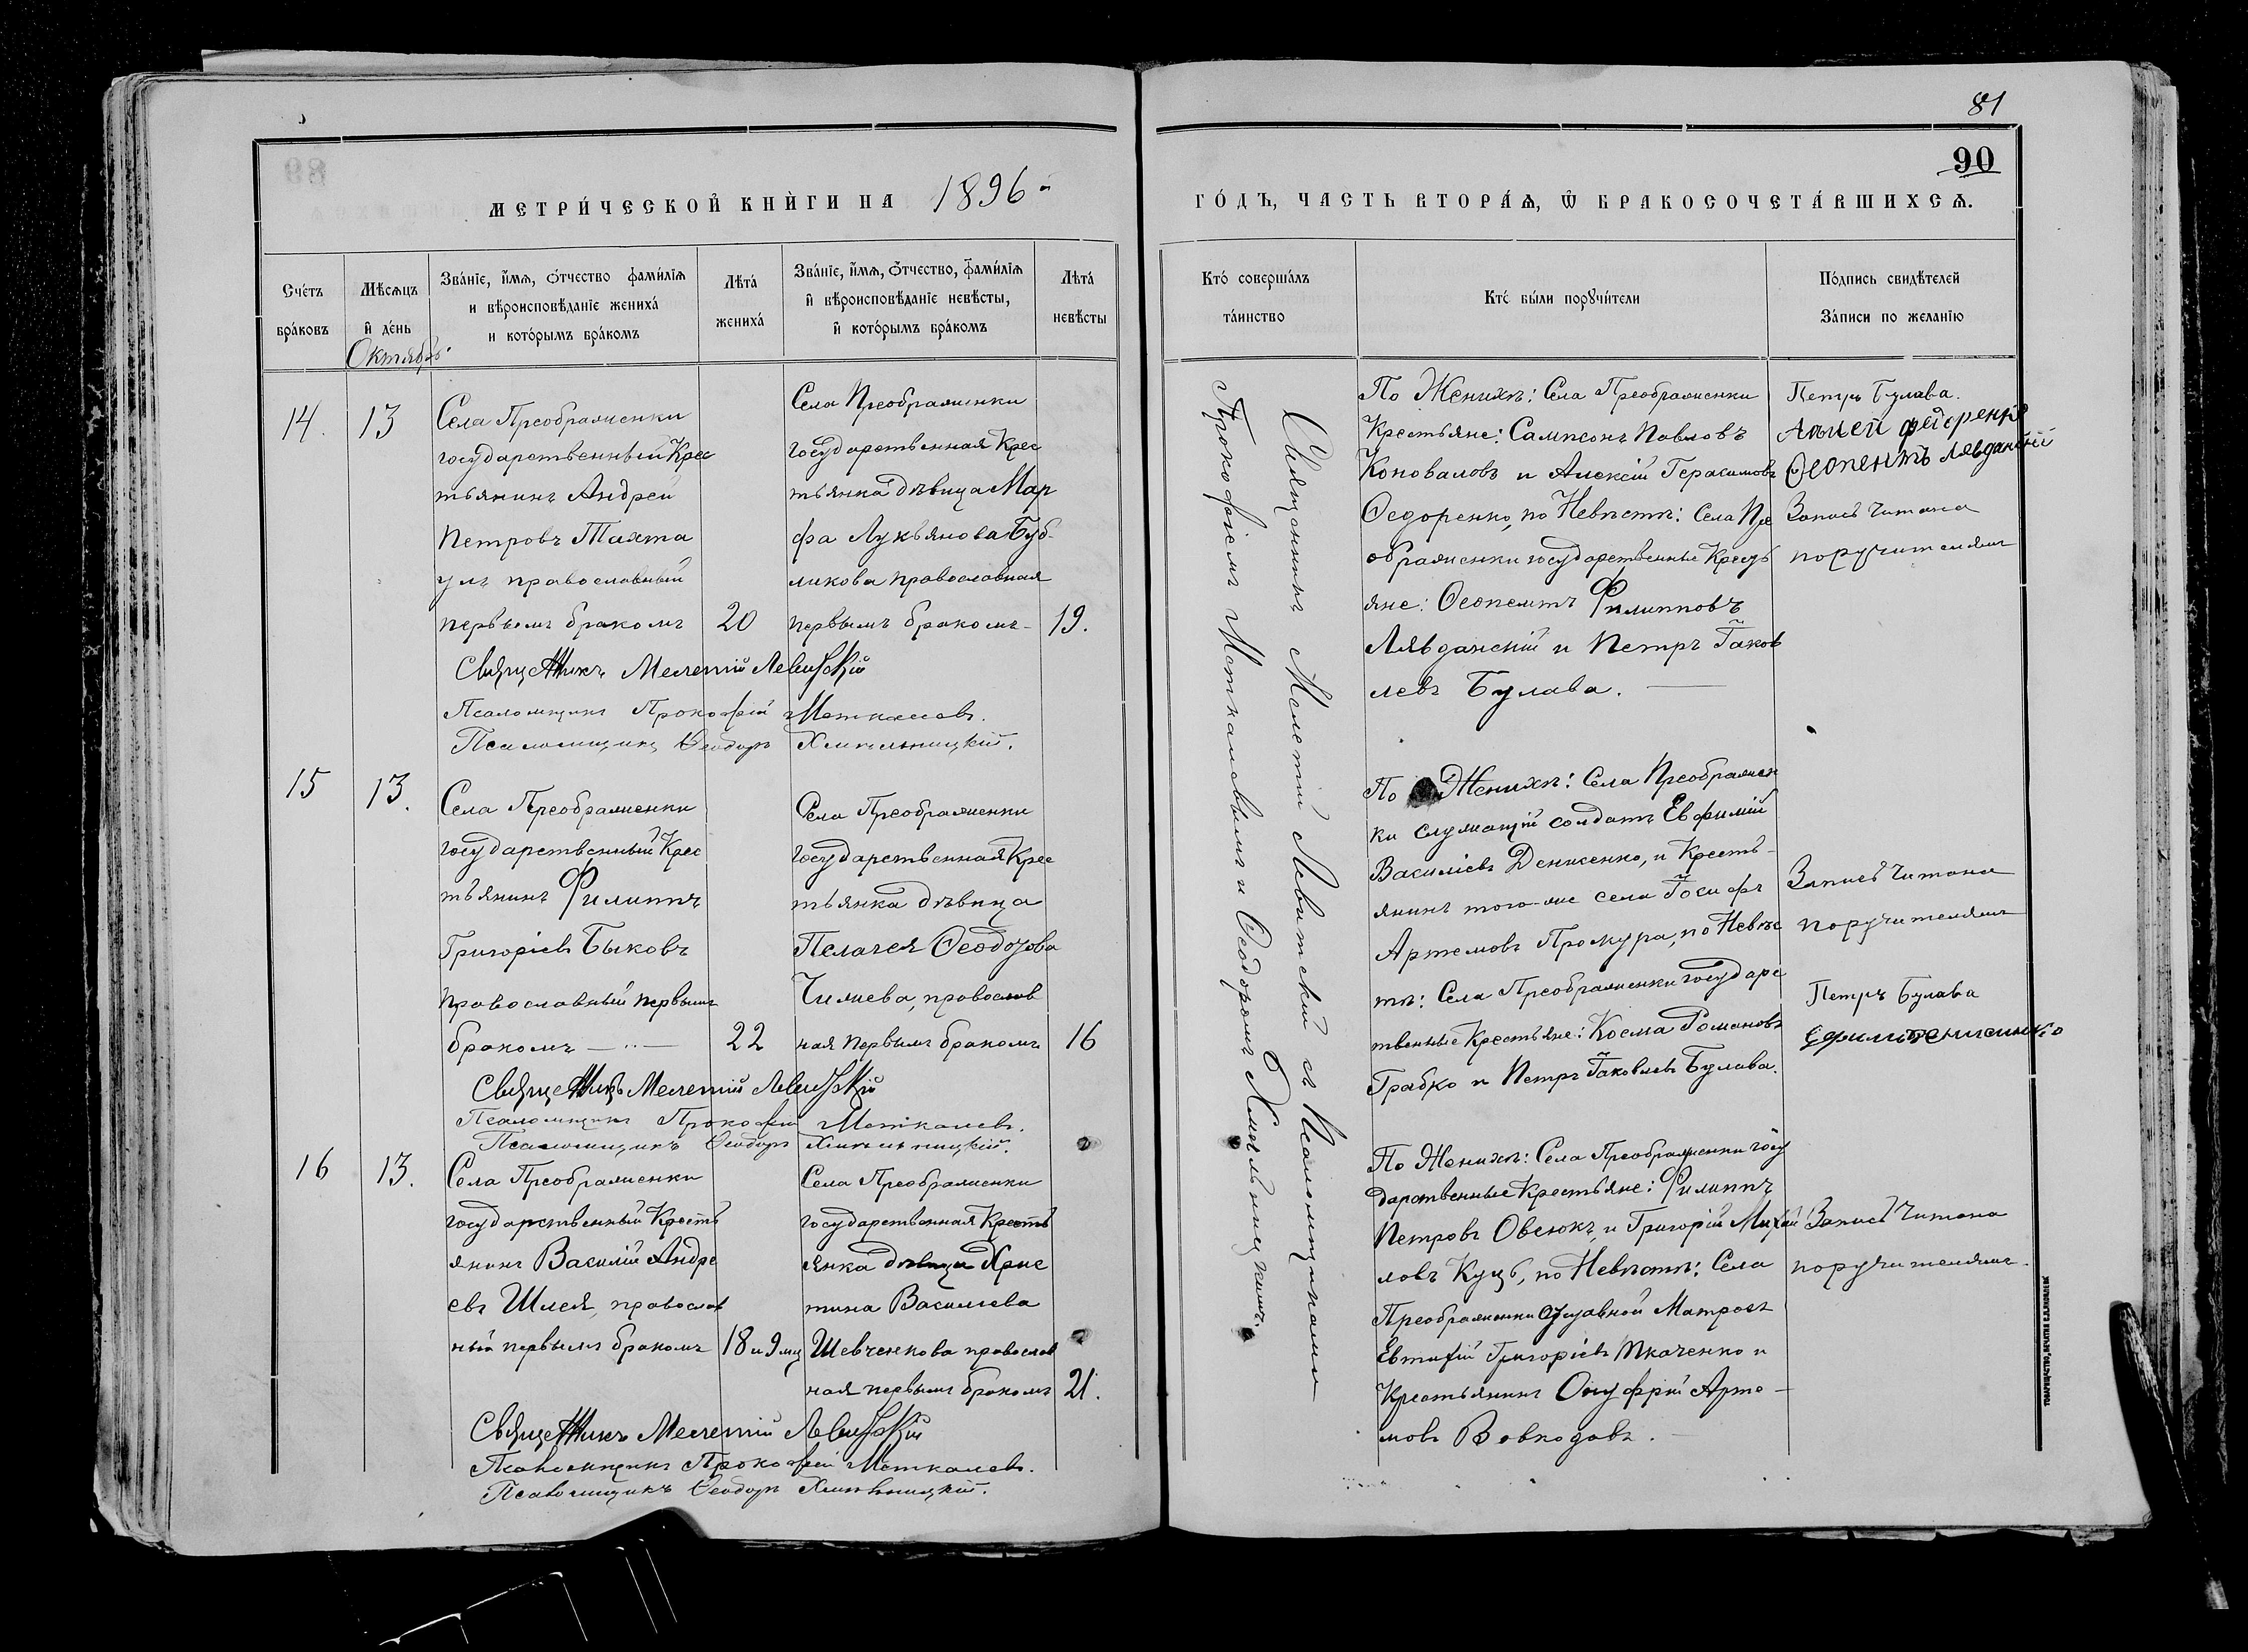 81
90
МЕТРИ́ЧЕСКОЙ КНИ́ГИ НА 1896-й
ГО́ДЪ, ЧАСТЬ ВТОРА́Ѧ, Ѡ҆ БРАКОСОЧЕТА́ВШИХСѦ.
Сче́тъ
бра́ковъ
Мѣ́сѧцъ
и҆ де́нь
Октябрь
Зва́нїе, и҆́мѧ, ѻ҆́тчество фами́лїѧ
и вѣроисповѣ́данїе жениха́
и кото́рымъ бра́комъ
Лѣта́
жениха́
Зва́нїе, и҆́мѧ, ѻ҆́тчество, фами́лїѧ
и҆ вѣроисповѣ́данїе невѣ́сты,
и҆ кото́рымъ бра́комъ
Лѣта́
невѣ́сты
Кто́ соверша́лъ
та́инство
Кто́ бы́ли порꙋчи́тели
По́дпись свидѣ́телей
За́писи по жела́нїю
14.
13
Села Преображенки
государственный Крес
тьянинъ Андрей
Петровъ Тахта
улъ православный
первымъ бракомъ
20
Села Преображенки
государственная Крес
тьянка дѣвица Мар
фа Лукьянова Буб-
ликова православная
первымъ бракомъ-
19.
Священникъ Мелетій Левитскій
Псаломщикъ Прокофій Меткалевъ.
Псаломщикъ Ѳеодоръ Хмельницкій.
15
13.
Села Преображенки
государственный Крес
тьянинъ Филиппъ
Григоріевъ Быковъ
православный первымъ
бракомъ
22
Села Преображенки
государственная Крес
тьянка дѣвица
Пелагея Ѳеодозова
Чижева, православ
ная первымъ бракомъ
16
Священникъ Мелетій Левитскій
Псаломщикъ Прокофій Меткалевъ.
Псаломщикъ Ѳеодоръ Хмельницкій.
16
13.
Села Преображенки
государственный Кресть
янинъ Василій Андре
евъ Шлея, православ
ный первымъ бракомъ
18 и 9 мц
Села Преображенки
государственная Кресть
янка дѣвица Хрис
тина Васильева
Шевченкова православ
ная первымъ бракомъ
21.
Священникъ Мелетій Левитскій
Псаломщикъ Прокофій Меткалевъ.
Псаломщикъ Ѳеодоръ Хмельницкій.
Священникъ Мелетій Левитскій съ Псаломщиками
Прокофіемъ Меткалевымъ и Ѳеодоромъ Хмельницкимъ.
По Женихѣ: Села Преображенки
Крестьяне: Сампсонъ Павловъ
Коноваловъ и Алексій Герасимовъ
Ѳедоренко, по Невѣстѣ: Села Пре
ображенки государственные Кресть
яне: Ѳеопемтъ Филипповъ
Лявданскій и Петръ Іаков
левъ Булава.
Петръ Булава.
Алексей федоренко
Ѳеопентъ Лявданскій
Запись читана
поручителямъ
По Женихѣ: Села Преображен
ки служащій солдатъ Евфимій
Василіевъ Денисенко, и Кресть-
янинъ того-же села Іосифъ
Артемовъ Прожура, по Невѣс
тѣ: Села Преображенки государс
твенные Крестьяне: Косма Романовъ
Грабко и Петръ Іаковлевъ Булава.
Запись читана
поручителямъ
Петръ Булава
Ефимъ Денисинко
По Женихѣ: Села Преображенки госу
дарственные Крестьяне: Филиппъ
Петровъ Овсюкъ, и Григорій Михай
ловъ Куцъ, по Невѣстѣ: Села
Преображенки отставной Матросъ
Евтифій Григоріевъ Ткаченко и
Крестьянинъ Онуфрій Арте-
мовъ Вовкодавъ.
Запись читана
поручителямъ.